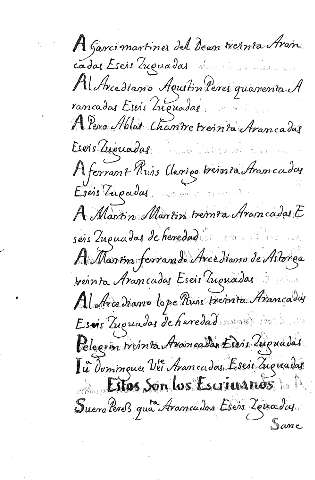 A Garci martines del Dean treinta Aran
cadas Eseis Zuguadas
Al Arcediano Agustin Peres quarenta A
rancadas Eseis Zuguadas
A Pero Ablat Chantre treinta Arancadas
Eseis Zuguadas
A ferrant Ruis Clerigo treinta Arancadas
Eseis Zugadas
A Martin Martin treinta Arancadas E
seis Zuguadas de heredad
A Martin ferrando Arcediano de Astorga
treinta Arancadas Eseis Zuguadas
Al Arcediano lope Ruis treinta Arancadas
Eseis Zuguadas de heredad
Pelegrin treinta Arancadas Eseis Zuguadas
Iuº Domingues Vte Arancadas Eseis Zuguadas
Estos Son los Escriuanos
Suero Peres quata Arancadas Eseis Zguadas
Sanc